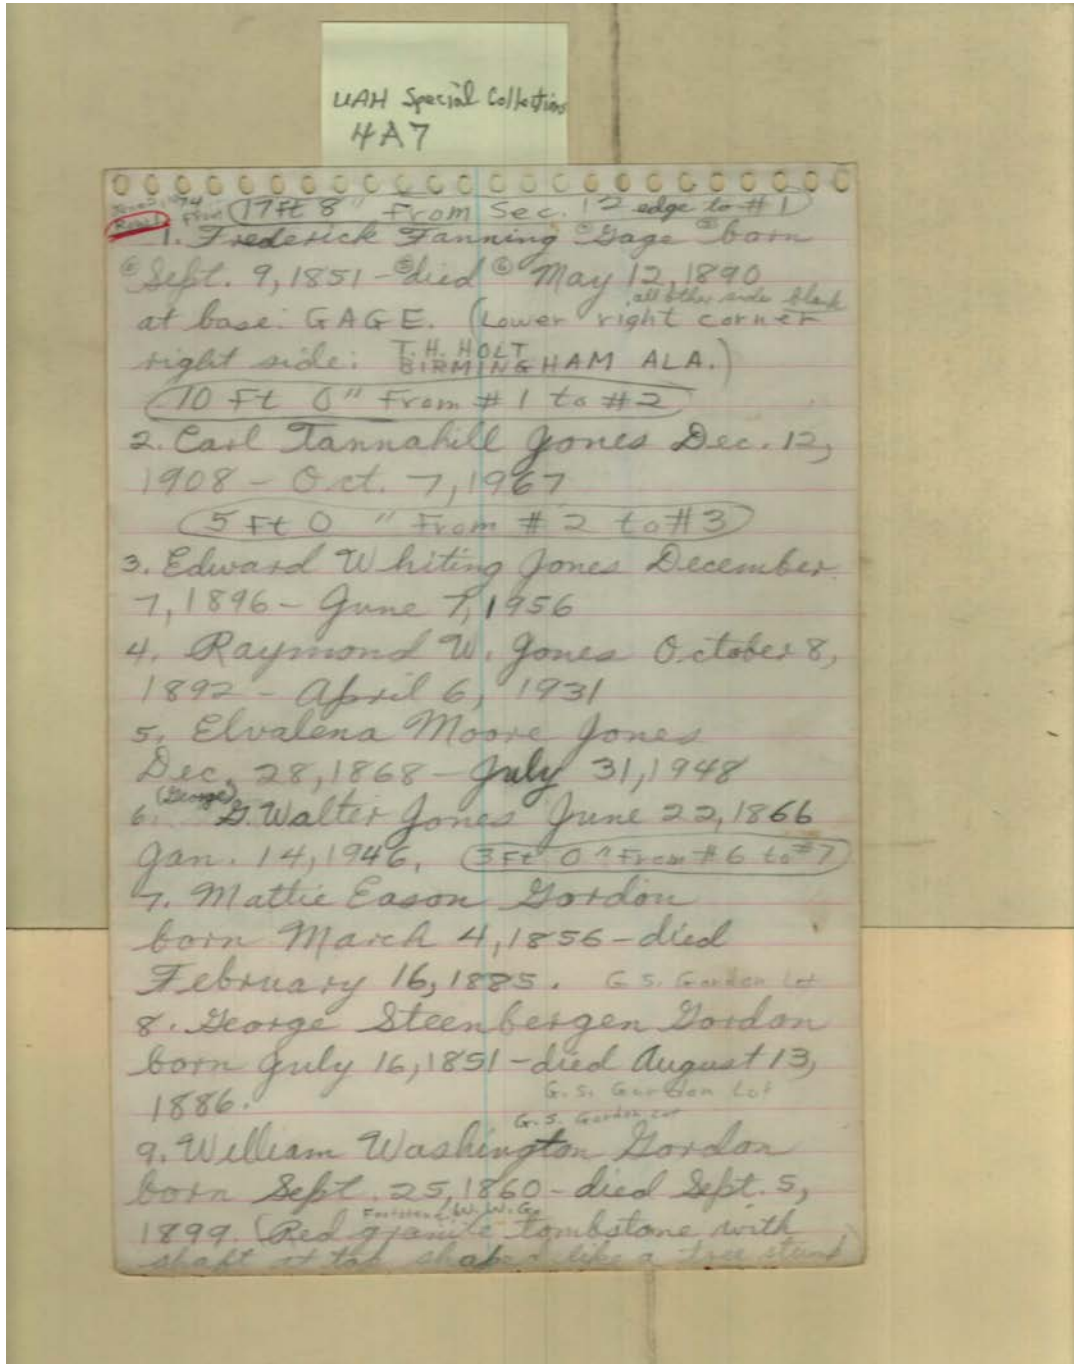 UAH Special Collections
4A7
17 Ft 8" From Sec. 12 edge to #1
1. Frederick Fanning Gage born
Sept. 9, 1851 - died May 12, 1890
all other sides blank
at base: GAGE. (Lower right corner
right side: T. H. HOLT
BIRMINGHAM ALA.)
10 Ft 0" From #1 to #2
2. Carl Tannahill Jones Dec. 12,
1908 - Oct. 7, 1967
5 Ft 0 " From #2 to #3
3. Edward Whiting Jones December
7, 1896 - June 7, 1956
4. Raymond W. Jones October 8,
1892 - April 6, 1931
5. Elvalena Moore Jones
Dec. 28, 1868 - July 31, 1948
(George)
6. G. Walter Jones June 22, 1866
Jan. 14, 1946. 3 Ft 0" From #6 to #7
7. Mattie Eason Gordon
born March 4, 1856 - died
February 16, 1885. G. S. Gordon Lot
8. George Steenbergen Gordon
born July 16, 1851 - died August 13,
1886. G. S. Gordon Lot
G. S. Gordon Lot
9. William Washington Gordon
born Sept. 25, 1860 - died Sept. 5,
Footstone W. W. G.
1899. (Red granite tombstone with
shaft at top shaped like a tree stump